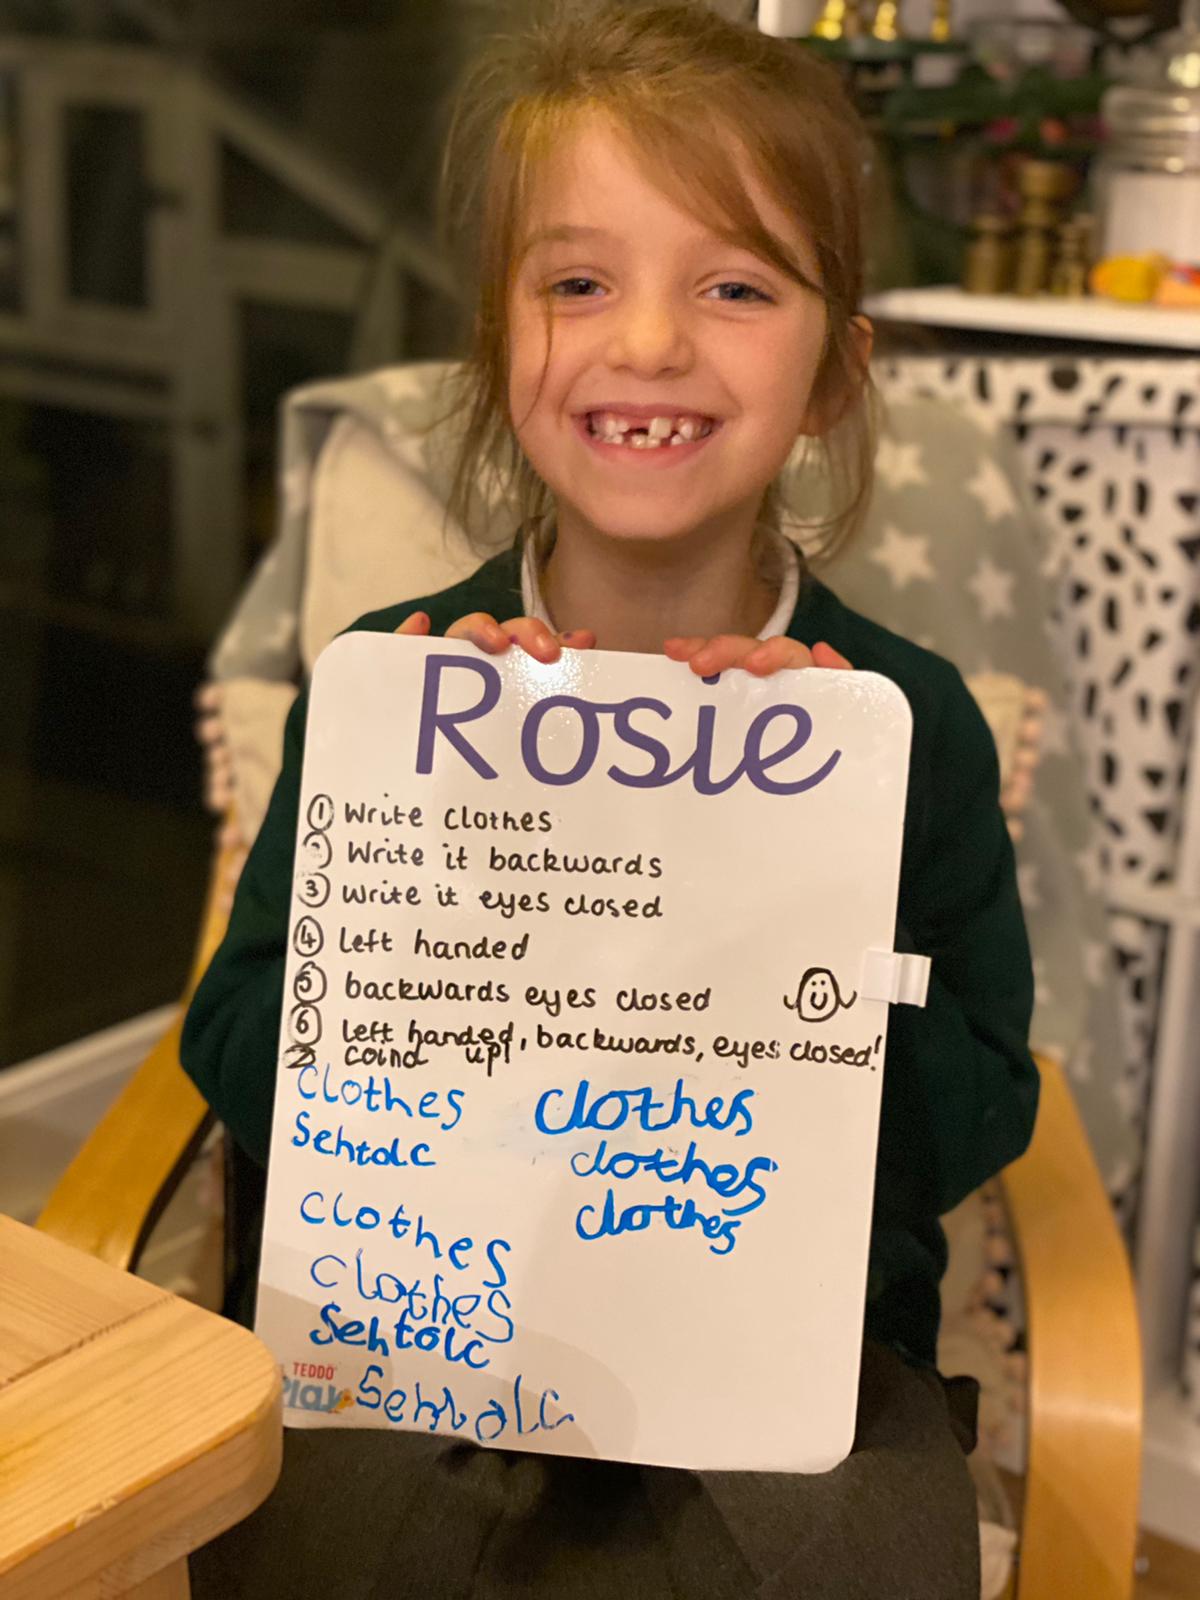 Rosie
① Write clothes
② Write it backwards
③ Write it eyes closed
④ left handed
⑤ backwards eyes closed
⑥ left handed, backwards, eyes closed!
up!
clothes
Sehtolc
clothes
clothes
Sehtolc
Sehtolc
clothes
clothes
clothes
TEDDO
Play